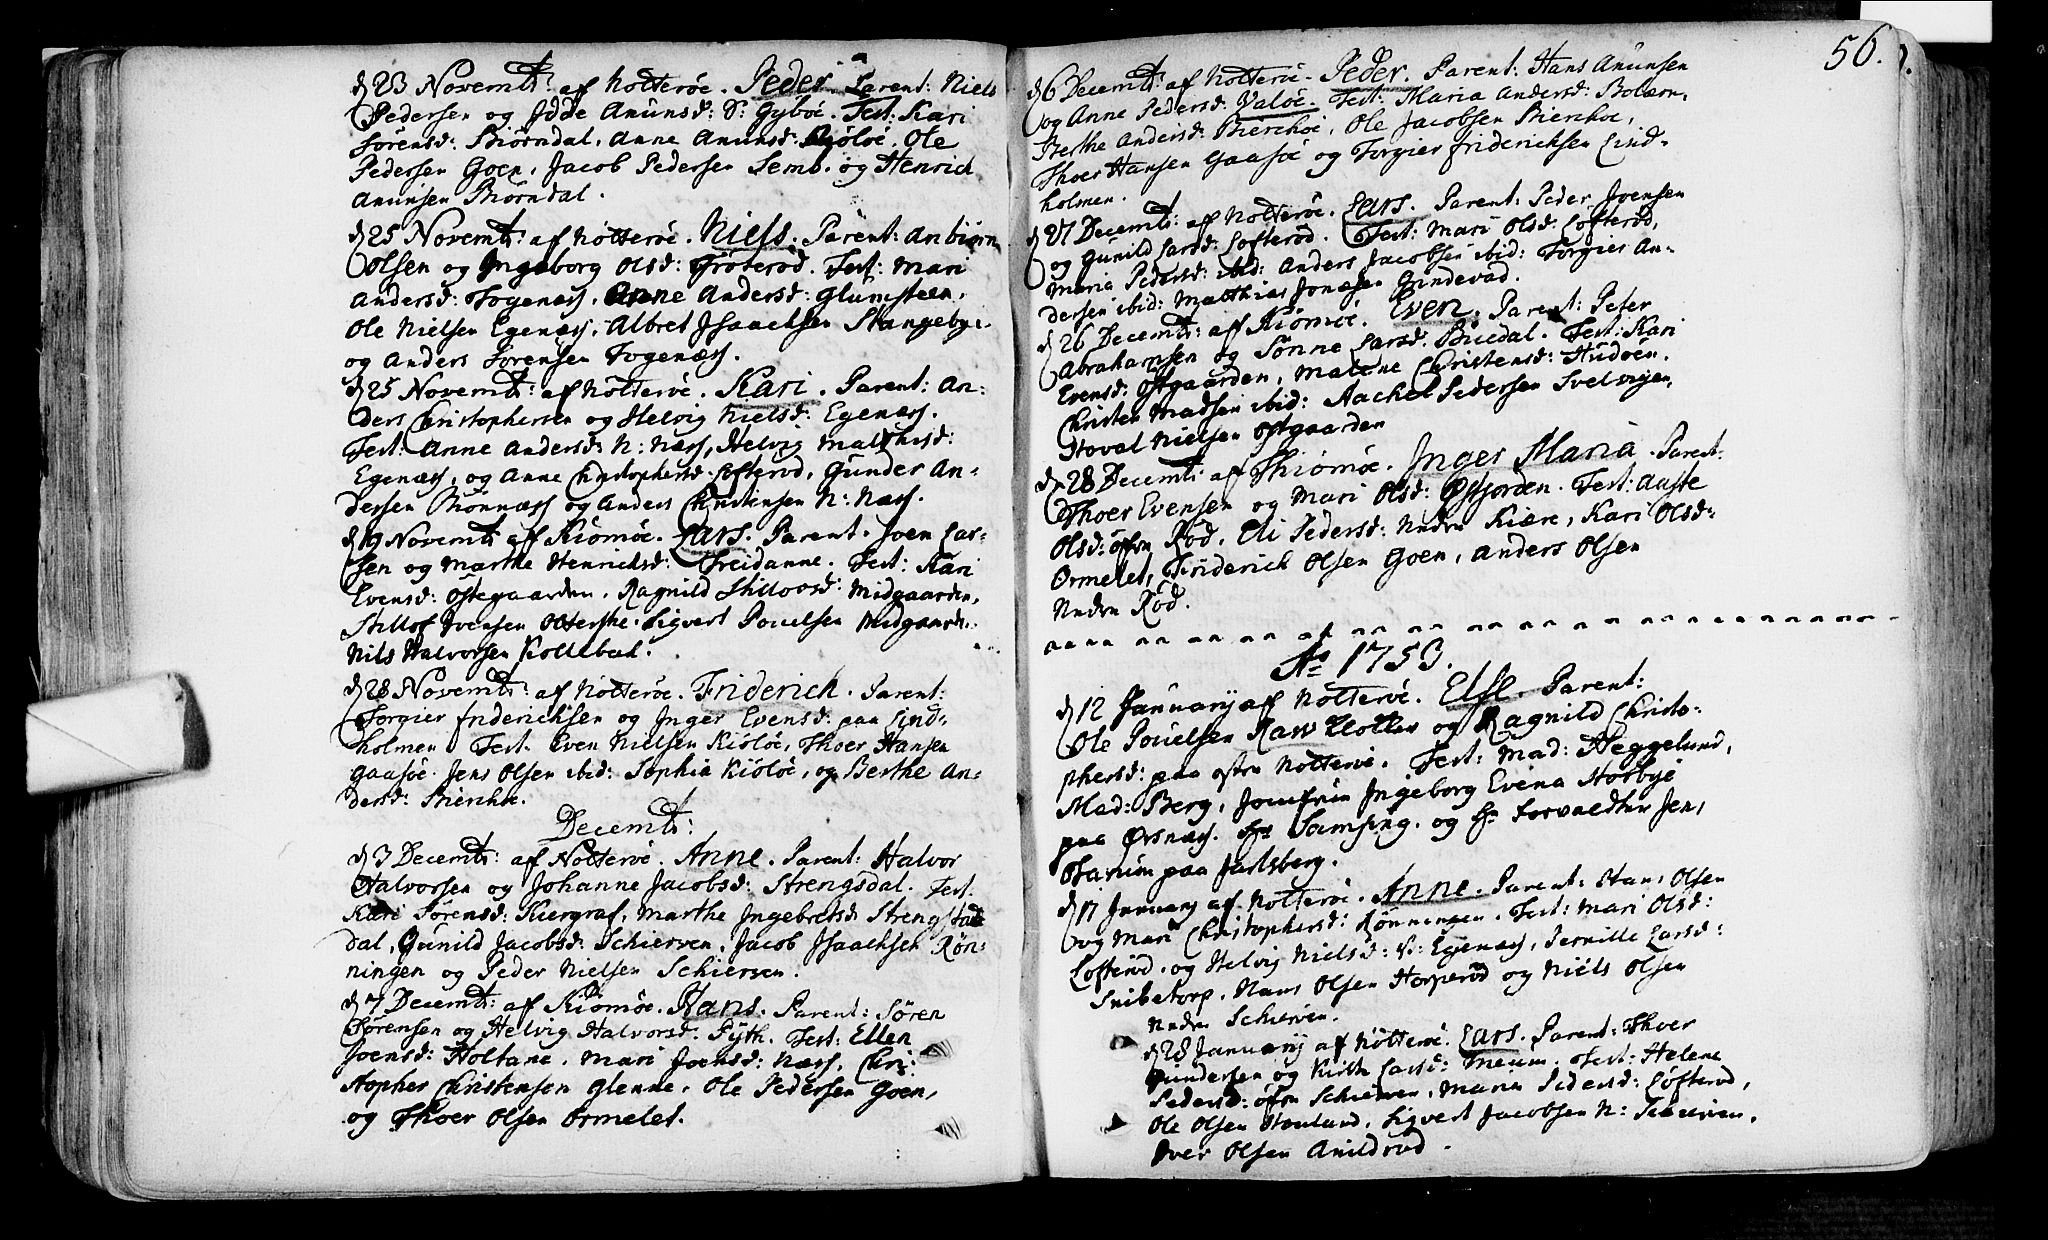 d 23 Novembr: af Nötteröe. Peder. Parent: Niels
Pedersen og Idde Amunsd: S: Gyböe. Test: Kari
Sörensd: Biörndal, Anne Amunsd: Kiölöe, Ole
Pedersen Goen, Jacob Pedersen Semb. og Henrich
Amunsen Biörndal.
d 25 Novembr: af Nötteröe. Niels. Parent: Anbiörn
Olsen og Ingeborg Olsd: Fröteröd. Test: Mari
Andersd: Togenæss, Anne Andersd: Glumsteen,
Ole Nielsen Egenæss, Albret Isaachsen Stangebye
og Anders Sörensen Togenæss.
d 25 Novembr: af Nötteröe. Kari. Parent: An-
ders Christophersen og Helvig Nielsd: Egenæss.
Test: Anne Andersd: N: Næss, Helvig Malthisd:
Egenæss, og Anne Christophersd: Lofteröd, Gunder An-
dersen Rönnæss og Anders Christensen N: Næss.
d 19 Novembr af Kiömöe. Lars. Parent. Joen Lar-
sen og Marthe Henrichsd: Treidanne. Test: Kari
Evensd: Östegaarden. Ragnild Stillovsd: Midgaarden,
Stillof Ivensen Olterthe. Sigvert Pouelsen Midgaard.
Nils Halvorsen Kollebud.
d 28 Novembr: af Nötteröe. Friderich. Parent:
Torgier friderichsen og Inger Evensd: paa Lind-
holmen Test. Even Nielsen Kiölöe, Thoer Hansen
Gaasöe. Jens Olsen ibid: Sophia Kiölöe, og Berthe An-
dersd: Bierchöe.
Decembr:
d 3 Decembr: af Nötteröe. Anne. Parent: Halvor
Halvorsen og Johanne Jacobsd: Strengsdal. Test.
Kari Sörensd: Kiergraf, Marthe Ingebretsd Strengs
dal, Gunild Jacobsd: Schierven, Jacob Isaachsen Rön-
ningen og Peder Nielsen Schierven.
d 7 Decembr: af Kiömöe. Hans. Parent: Sören
Sörensen og Helvig Halvorsd: Pÿth. Test: Ellen
Joensd: Holtane. Mari Joensd: Næss, Chri-
stopher Christensen Glenne. Ole Pedersen Goen,
og Thoer Olsen Ormelet.
56.
d 6 Decembr: af Nötteröe. Peder. Parent: Hans Amunsen
og Anne Pedersd: Valöe. Test: Maria Andersd: Bolærn,
Berthe Andersd: Bierchöe, Ole Jacobsen Bierchöe,
Thoer Hansen Gaasöe og Torgier friderichsen Lind-
holmen.
d 27 Decembr: af Nötteröe. Lars. Parent: Peder Joensen
og Gunild Larsd: Lofteröd. Test: Mari Olsd: Lofteröd,
Maria Pedersd: ibid: Anders Jacobsen ibid: Torgier An-
dersen ibid: Matthias Jonasen Gundevad.
d 26 Decembr: af Kiömöe. Even. Parent: Peter
Abrahamsen og Sönne Larsd: Buedal. Test: Kari
Evensd: Östgaarden, Malene Christensd: Hudöen.
Christen Madsen ibid: Rachel Pedersen Svelvigen,
Stoval Nielsen Östgaarden
d. 28 Decembr af Thiömöe. Inger Maria. Parent:
Thoer Evensen og Mari Olsd: Östjorden. Test: Aaste
Olsd: öfre Röd, Eli Pedersd: Nedre Kiære, Kari Olsd:
Ormelet, Friderich Olsen Goen, Anders Olsen
Nedre Röd.
Ao 1753.
d 12 January af Nötteröe. Else. Parent:
Ole Pouelsen og Ragnild Christo-
phersd: paa östre Nötteröe. Test: Mad: Heggelund,
Mad: Berg, Jomfrue Ingeborg Evena Stosbye
paa Örsnæss. Hr Samsing. og Hr Forvaldter Jen,
Otarium paa Jarlsberg.
d 17 January af Nötteröe. Anne. Parent: Hans Olsen
og Mari Christophersd: Rönningen. Test: Mari Olsd:
Lofteröd. og Helvig Nielsd: S: Egenæss, Pernille Larsd:
Snibetorp. Hans Olsen Horperöd og Niels Olsen
Nedre Schierven.
d 28 January af Nötteröe. Lars. Parent: Thoer
Gundersen og Kirsti Larsd: Meum. Test: Helene
Pedersd: öfre Schierven, Maria Pedersd: Lofteröd,
Ole Olsen Hovlund, Sigvert Jacobsen N: Schierven,
Iver Olsen Amildröd.